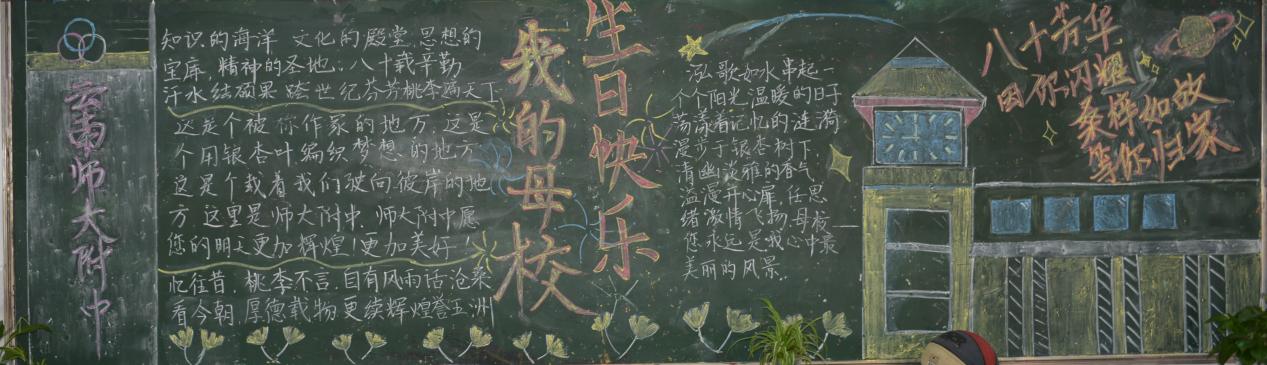 云南师大附中
知识的海洋 文化的殿堂 思想的
宝库 精神的圣地，八十载辛勤
汗水结硕果 跨世纪芬芳桃李满天下
这是个被你作家的地方，这是
个用银杏叶编织梦想的地方
这是个载着我们驶向彼岸的地
方 这里是师大附中 师大附中愿
您的明天更加辉煌！更加美好！
忆往昔，桃李不言，自有风雨话沧桑
看今朝，厚德载物更续辉煌誉五洲
我的母校
生日快乐
泓歌如水串起一
个个阳光温暖的日子
荡漾着记忆的涟漪
漫步于银杏树下，
清幽淡雅的香气
溢漫开心扉，任思
绪激情飞扬，母校
您永远是我心中最
美丽的风景。
八十芳华
因你闪耀
桑梓如故
等你归家